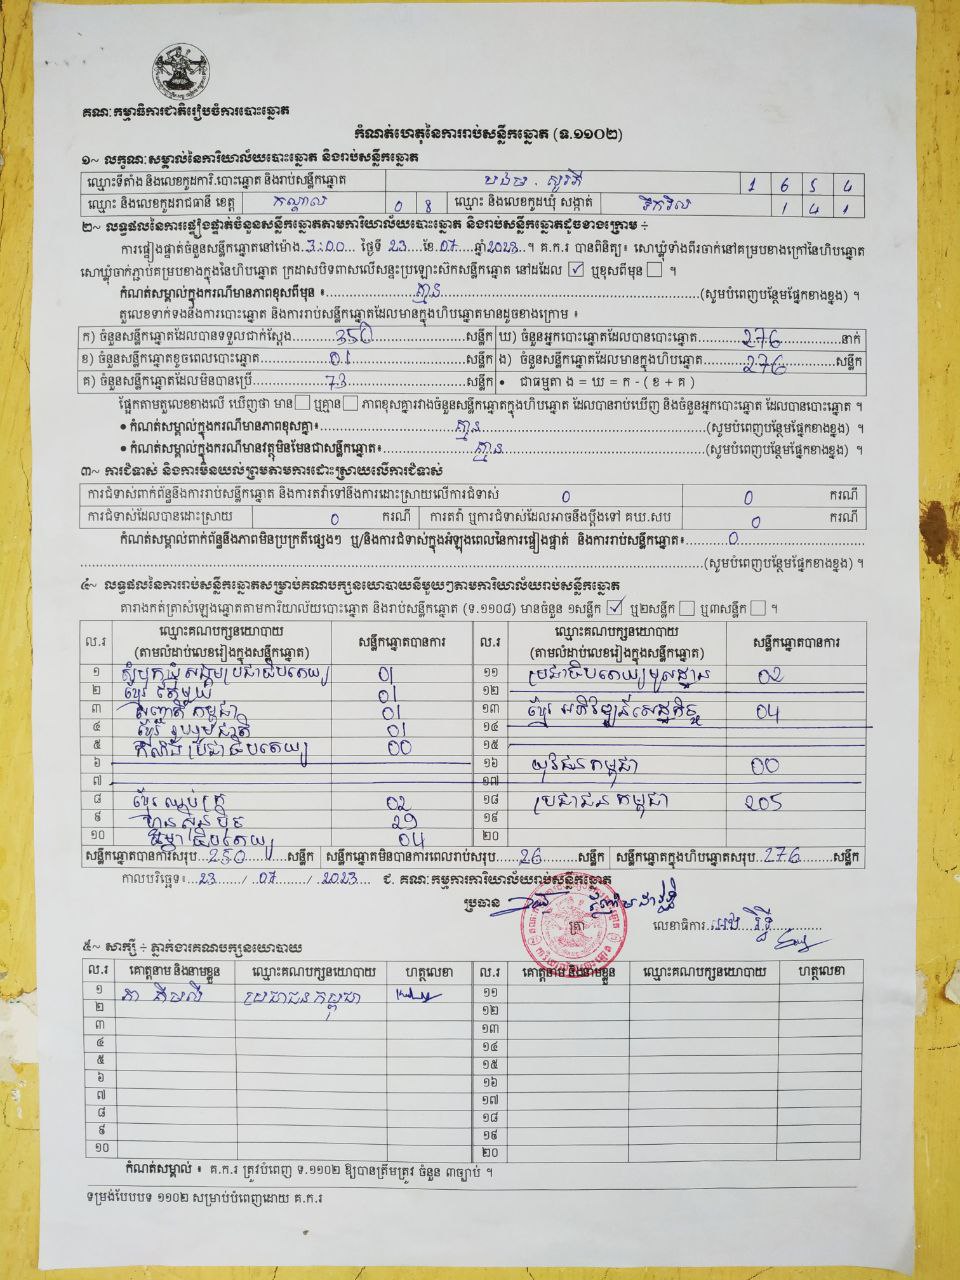 គណៈកម្មាធិការជាតិរៀបចំការបោះឆ្នោត
កំណត់ហេតុនៃការរាប់សន្លឹកឆ្នោត (ទ.១១០២)
១~ លក្ខណៈសម្គាល់នៃការិយាល័យបោះឆ្នោត និងរាប់សន្លឹកឆ្នោត
ឈ្មោះទីតាំង និងលេខកូដការិ.បោះឆ្នោត និងរាប់សន្លឹកឆ្នោត 1 6 5 4
ឈ្មោះ និងលេខកូដរាជធានី ខេត្ត កណ្តាល 0 8 ឈ្មោះ និងលេខកូដឃុំ សង្កាត់ ទឹកវិល 1 4 1
២~ លទ្ធផលនៃការផ្ទៀងផ្ទាត់ចំនួនសន្លឹកឆ្នោតតាមការិយាល័យបោះឆ្នោត និងរាប់សន្លឹកឆ្នោតដូចខាងក្រោម ÷
ការផ្ទៀងផ្ទាត់ចំនួនសន្លឹកឆ្នោតនៅម៉ោង 3:00 ថ្ងៃទី 23 ខែ 07 ឆ្នាំ 2023 ។ គ.ក.រ បានពិនិត្យ៖ សោឃ្លុំទាំងពីរចាក់នៅគម្របខាងក្រៅនៃហិបឆ្នោត
សោឃ្លុំចាក់ភ្ជាប់គម្របខាងក្នុងនៃហិបឆ្នោត ក្រដាសបិទពាសលើសន្ទះប្រឡោះស៊កសន្លឹកឆ្នោត នៅដដែល ✓ ឬខុសពីមុន ។
កំណត់សម្គាល់ក្នុងករណីមានភាពខុសពីមុន ៖ គ្មាន (សូមបំពេញបន្ថែមផ្នែកខាងខ្នង) ។
តួលេខទាក់ទងនឹងការបោះឆ្នោត និងការរាប់សន្លឹកឆ្នោតដែលមានក្នុងហិបឆ្នោតមានដូចខាងក្រោម ៖
ក) ចំនួនសន្លឹកឆ្នោតដែលបានទទួលជាក់ស្តែង 350 សន្លឹក ឃ) ចំនួនអ្នកបោះឆ្នោតដែលបានបោះឆ្នោត 276 នាក់
ខ) ចំនួនសន្លឹកឆ្នោតខូចពេលបោះឆ្នោត 01 សន្លឹក ង) ចំនួនសន្លឹកឆ្នោតដែលមានក្នុងហិបឆ្នោត 276 សន្លឹក
គ) ចំនួនសន្លឹកឆ្នោតដែលមិនបានប្រើ 73 សន្លឹក • ជាធម្មតា ង = ឃ = ក - ( ខ + គ )
ផ្អែកតាមតួលេខខាងលើ ឃើញថា មាន ឬគ្មាន ភាពខុសគ្នារវាងចំនួនសន្លឹកឆ្នោតក្នុងហិបឆ្នោត ដែលបានរាប់ឃើញ និងចំនួនអ្នកបោះឆ្នោត ដែលបានបោះឆ្នោត ។
• កំណត់សម្គាល់ក្នុងករណីមានភាពខុសគ្នា៖ គ្មាន (សូមបំពេញបន្ថែមផ្នែកខាងខ្នង) ។
• កំណត់សម្គាល់ក្នុងករណីមានវត្ថុមិនមែនជាសន្លឹកឆ្នោត៖ គ្មាន (សូមបំពេញបន្ថែមផ្នែកខាងខ្នង) ។
៣~ ការជំទាស់ និងការមិនយល់ព្រមតាមការដោះស្រាយលើការជំទាស់
ការជំទាស់ពាក់ព័ន្ធនឹងការរាប់សន្លឹកឆ្នោត និងការតវ៉ាទៅនឹងការដោះស្រាយលើការជំទាស់ 0 0 ករណី
ការជំទាស់ដែលបានដោះស្រាយ 0 ករណី ការតវ៉ា ឬការជំទាស់ដែលអាចនឹងប្តឹងទៅ គឃ.សប 0 ករណី
កំណត់សម្គាល់ពាក់ព័ន្ធនឹងភាពមិនប្រក្រតីផ្សេងៗ ឬ/និងការជំទាស់ក្នុងអំឡុងពេលនៃការផ្ទៀងផ្ទាត់ និងការរាប់សន្លឹកឆ្នោត៖ 0
(សូមបំពេញបន្ថែមផ្នែកខាងខ្នង) ។
៤~ លទ្ធផលនៃការរាប់សន្លឹកឆ្នោតសម្រាប់គណបក្សនយោបាយនីមួយៗតាមការិយាល័យរាប់សន្លឹកឆ្នោត
តារាងកត់ត្រាសំឡេងឆ្នោតតាមការិយាល័យបោះឆ្នោត និងរាប់សន្លឹកឆ្នោត (ទ.១១០៨) មានចំនួន ១សន្លឹក ✓ ឬ២សន្លឹក ឬ៣សន្លឹក ។
ល.រ ឈ្មោះគណបក្សនយោបាយ (តាមលំដាប់លេខរៀងក្នុងសន្លឹកឆ្នោត) សន្លឹកឆ្នោតបានការ ល.រ ឈ្មោះគណបក្សនយោបាយ (តាមលំដាប់លេខរៀងក្នុងសន្លឹកឆ្នោត) សន្លឹកឆ្នោតបានការ
១ សំបុកឃ្មុំសង្គមប្រជាធិបតេយ្យ 01 ១១ ប្រជាធិបតេយ្យមូលដ្ឋាន 02
២ ខ្មែរ តែមួយ 01 ១២
៣ សញ្ជាតិ កម្ពុជា 01 ១៣ ខ្មែរ អភិវឌ្ឍន៍សេដ្ឋកិច្ច 04
៤ ខ្មែរ រួបរួមជាតិ 01 ១៤
៥ កំលាំង ប្រជាធិបតេយ្យ 00 ១៥
៦ ១៦ យុវជន កម្ពុជា 00
៧ ១៧
៨ ខ្មែរ ឈប់ក្រ 02 ១៨ ប្រជាជន កម្ពុជា 205
៩ ហ៊្វុនស៊ិនប៉ិច 29 ១៩
១០ ធម្មាធិបតេយ្យ 04 ២០
សន្លឹកឆ្នោតបានការសរុប 250 សន្លឹក សន្លឹកឆ្នោតមិនបានការពេលរាប់សរុប 26 សន្លឹក សន្លឹកឆ្នោតក្នុងហិបឆ្នោតសរុប 276 សន្លឹក
កាលបរិច្ឆេទ៖ 23 / 07 / 2023 ជ. គណៈកម្មការការិយាល័យរាប់សន្លឹកឆ្នោត
ប្រធាន
ត្រា លេខាធិការ
៥~ សាក្សី ÷ ភ្នាក់ងារគណបក្សនយោបាយ
ល.រ គោត្តនាម និងនាមខ្លួន ឈ្មោះគណបក្សនយោបាយ ហត្ថលេខា ល.រ គោត្តនាម និងនាមខ្លួន ឈ្មោះគណបក្សនយោបាយ ហត្ថលេខា
១ ប្រជាជនកម្ពុជា ១១
២ ១២
៣ ១៣
៤ ១៤
៥ ១៥
៦ ១៦
៧ ១៧
៨ ១៨
៩ ១៩
១០ ២០
កំណត់សម្គាល់ ៖ គ.ក.រ ត្រូវបំពេញ ទ.១១០២ ឱ្យបានត្រឹមត្រូវ ចំនួន ៣ច្បាប់ ។
ទម្រង់បែបបទ ១១០២ សម្រាប់បំពេញដោយ គ.ក.រ